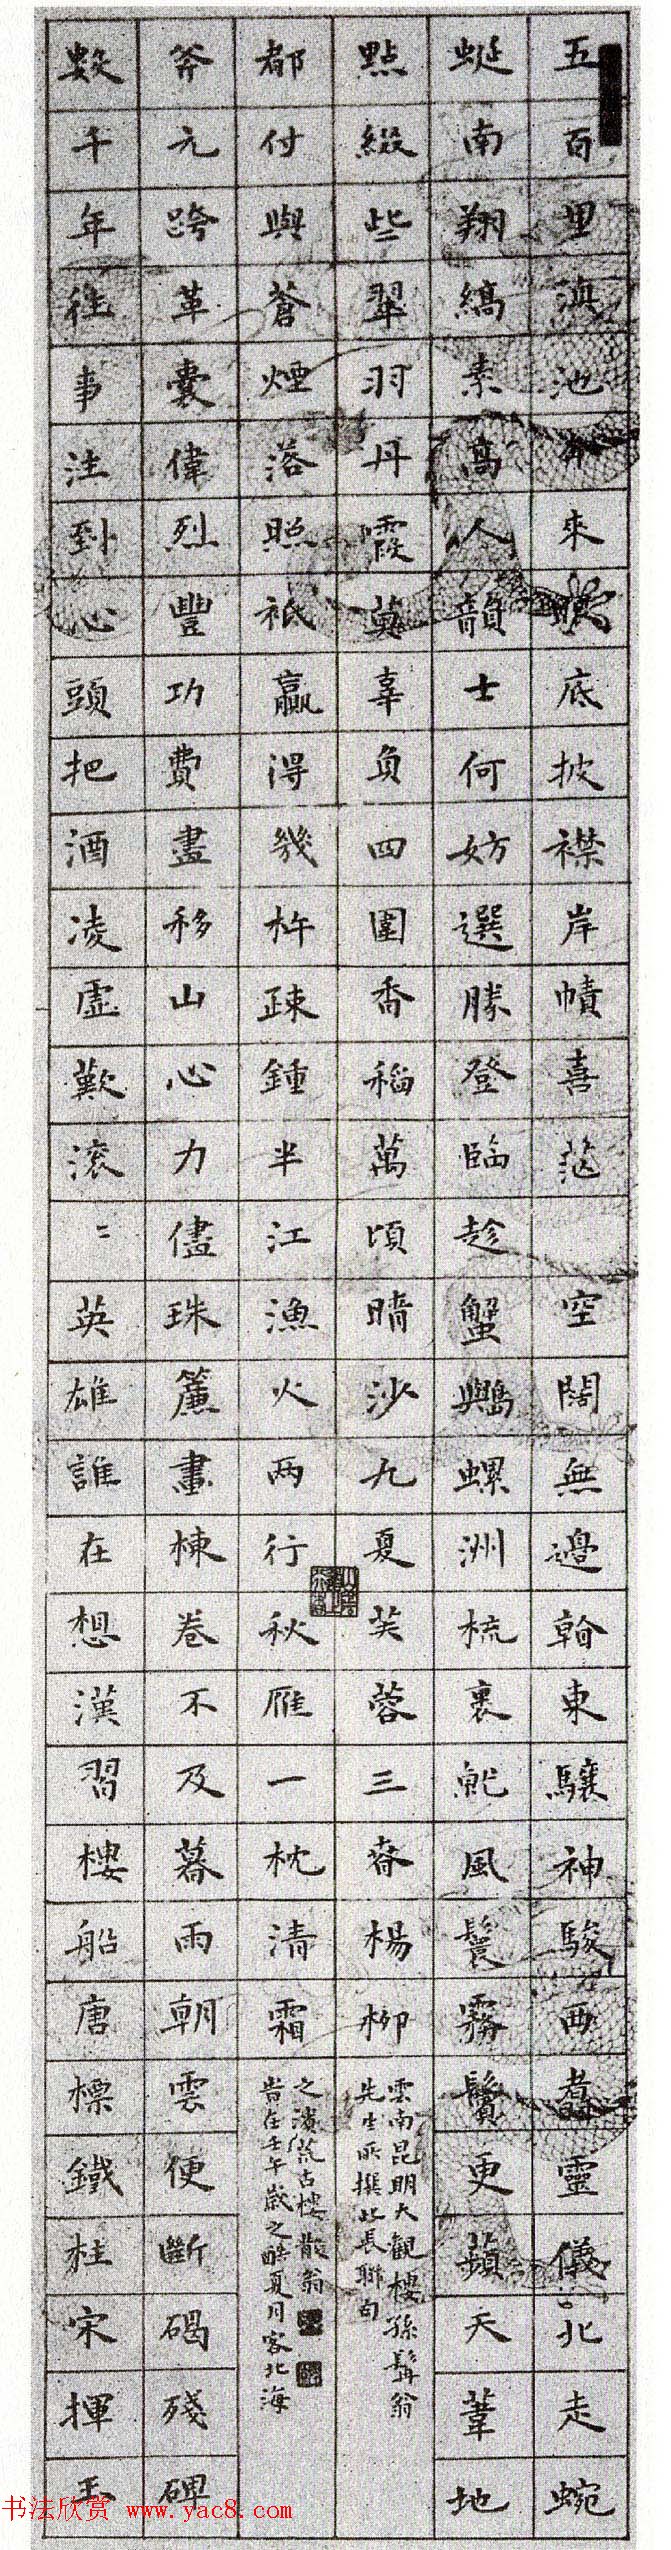 五百里滇池奔來眼底披襟岸幘喜茫空闊無邊看東驤神駿西翥靈儀北走蜿
蜒南翔縞素高人韻士何妨選勝登臨趁蟹嶼螺洲梳裹就風鬟霧鬢更蘋天葦地
點綴些翠羽丹霞莫辜負四圍香稻萬頃晴沙九夏芙蓉三春楊柳
雲南昆明大觀樓孫髯翁
先生所撰此長聯句
數千年往事注到心頭把酒凌虛歎滾〻英雄誰在想漢習樓船唐標鐵柱宋揮玉
斧元跨革囊偉烈豐功費盡移山心力儘珠簾畫棟卷不及暮雨朝雲便斷碣殘碑
都付與蒼煙落照祇贏得幾杵疎鍾半江漁火兩行秋雁一枕清霜
旹在壬午歲之酷夏月客北海
之濱古樓散翁
书法欣赏 www.yac8.com